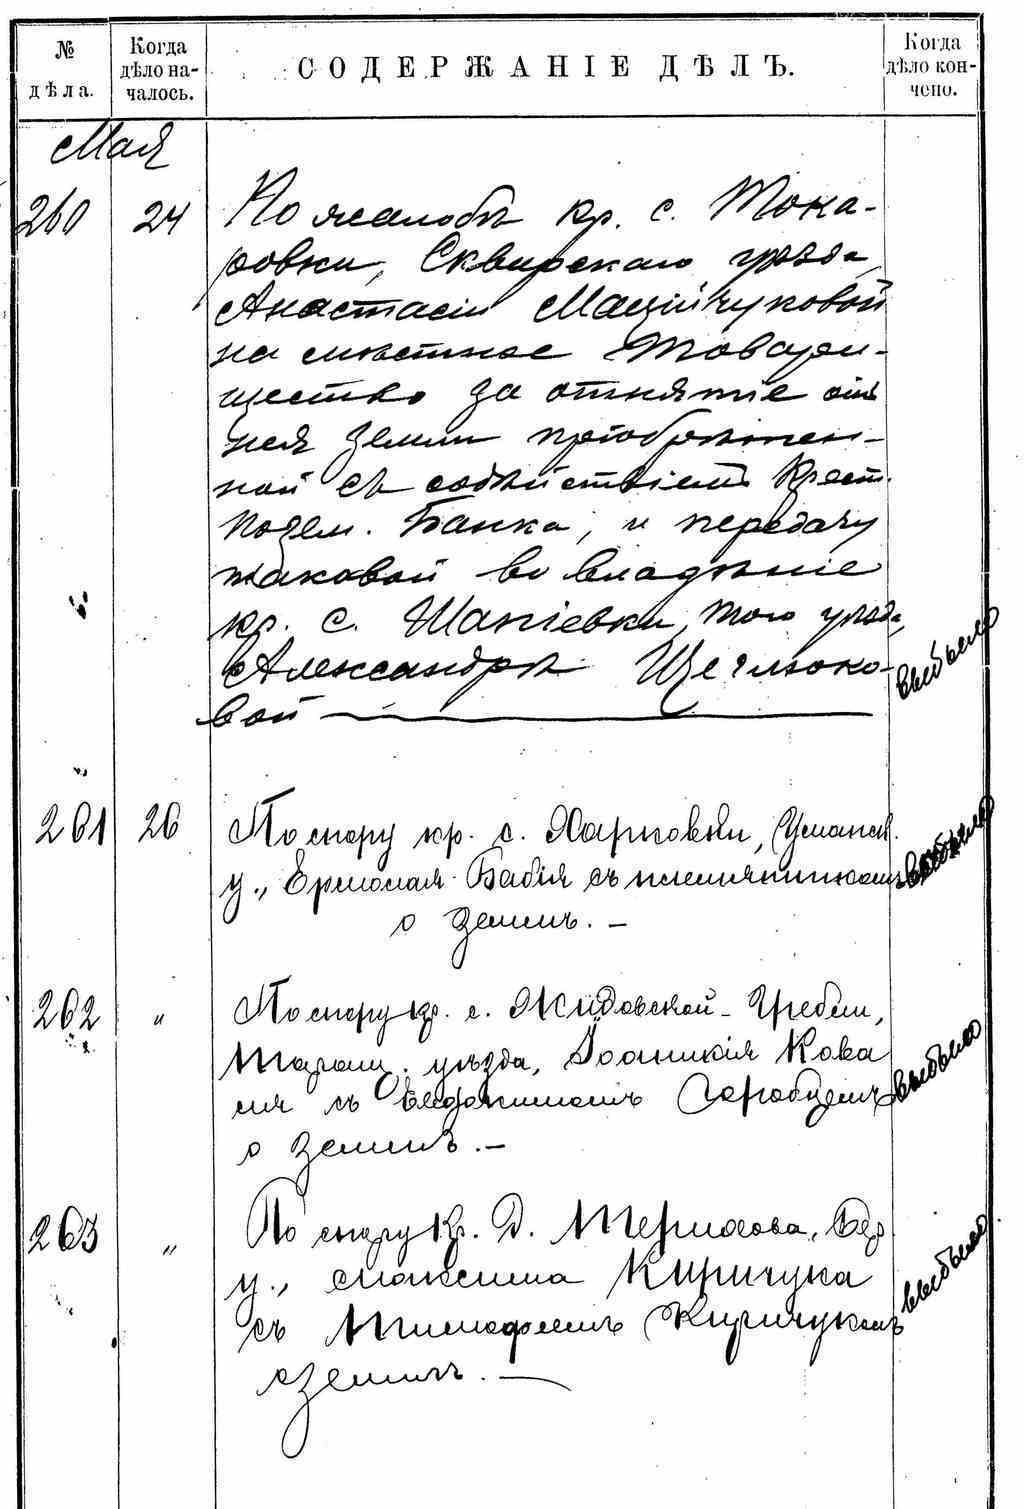 № дѣла.
Когда дѣло началось.
СОДЕРЖАНІЕ ДѢЛЪ.
Когда дѣло кончено.
Мая
260 24 По жалобѣ кр. с. Тока-
ровки, Сквирскаго уѣзда,
Анастасіи Маційчуковой
на мѣстное Товари-
щество за отнятіе отъ
нея земли пріобрѣтен-
ной съ содѣйствіемъ Крест.
Позем. Банка, и передачу
таковой во владѣніе
кр. с. Шапіевки, того уѣзда,
Александрѣ Щеглюко-
вой
выбыло
261 26 По спору кр. с. Харковки, Уманск.
у., Ермолая Бабія съ племянникомъ
о землѣ. –
выбыло
262 „ По спору кр. с. Жидовской-Гребли,
Таращ. уѣзда, Іоанникія Кова
ля съ Евдокимомъ
о землѣ. –
выбыло
263 „ По спору кр. д. Бер.
у., Киричука
съ Тимофеемъ Киричукомъ
о землѣ. –
выбыло